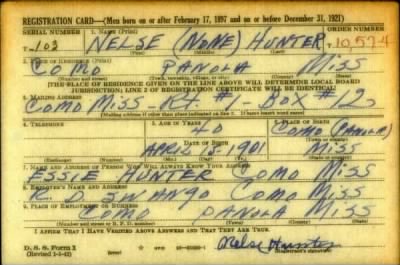 REGISTRATION CARD—(Men born on or after February 17, 1897 and on or before December 31, 1921)
SERIAL NUMBER 1. NAME (Print) ORDER NUMBER
T- 103 NELSE (NONE) HUNTER 10574
2. PLACE OF RESIDENCE (Print)
COMO PANOLA MISS
(Number and street) (Town, township, village, or city) (County) (State)
[THE PLACE OF RESIDENCE GIVEN ON THE LINE ABOVE WILL DETERMINE LOCAL BOARD
JURISDICTION; LINE 2 OF REGISTRATION CERTIFICATE WILL BE IDENTICAL]
3. MAILING ADDRESS
COMO MISS - Rt. #1 - BOX #12
[Mailing address if other than place indicated on line 2. If same insert word same]
4. TELEPHONE 5. AGE IN YEARS 6. PLACE OF BIRTH
40 COMO (PANOLA)
DATE OF BIRTH (Town or county)
APRIL 15 1901 MISS
(Exchange) (Number) (Mo.) (Day) (Yr.) (State or country)
7. NAME AND ADDRESS OF PERSON WHO WILL ALWAYS KNOW YOUR ADDRESS
ESSIE HUNTER COMO MISS
8. EMPLOYER'S NAME AND ADDRESS
SWANGO COMO MISS
9. PLACE OF EMPLOYMENT OR BUSINESS
COMO PANOLA MISS
(Number and street or R. F. D. number) (Town) (County) (State)
I AFFIRM THAT I HAVE VERIFIED ABOVE ANSWERS AND THAT THEY ARE TRUE.
D. S. S. Form 1
Nelse Hunter